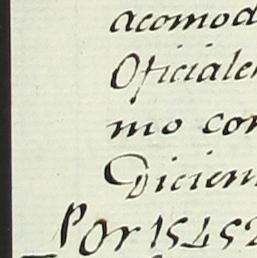 acomod
Oficiale
mo con
Diciem
Por 15452